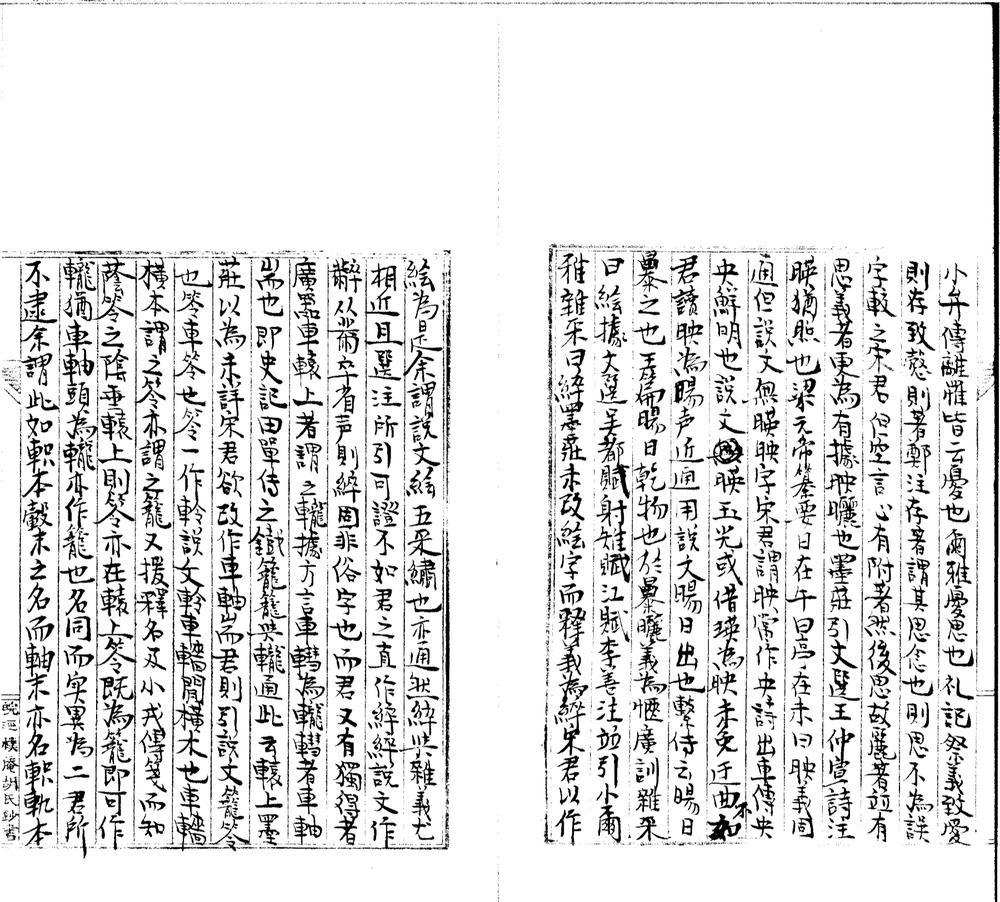 小弁傳離罹皆云憂也爾雅憂思也礼記祭義致愛
則存致慤則著鄭注存著謂其思念也則思不為誤
字較之宋君但空言心有附著然後思故麗著並有
思義者更為有據映曬也墨莊引文選王仲宣詩注
暎猶照也梁元帝纂要日在午曰亭在未曰映義固
通但說文無暎映字宋君謂映當作央詩出車傳央
央鮮明也說文暎玉光或借瑛為映未免迂曲不如
君讀映為暘声近通用說文暘日出也繫傳云暘日
暴之也玉篇暘日乾物也於暴曬義為愜廣訓雜采
曰絵據文選吴都賦射雉賦江賦李善注並引小爾
雅雜采曰綷墨莊未改絵字而釋義為綷宋君以作
絵為是余謂說文絵五采繡也亦通然綷與雜義尤
相近且選注所引可證不如君之直作綷綷說文作
辭从黹宰省声則綷固非俗字也而君又有獨得者
廣器車轅上者謂之轣據方言車轊為轣轊者車軸
耑也即史記田單傳之鐵籠籠與轣通此云轅上墨
莊以為未詳宋君欲改作車軸耑而君則引說文籠笭
也笭車笭也笭一作軨說文軨車轖間橫木也車轖
橫木謂之笭亦謂之籠又援釋名及小戎傳箋而知
蔭笭之陰垂轅上則笭亦在轅上笭既為籠即可作
轣猶車軸頭為轣亦作籠也名同而实異為二君所
不逮余謂此如軹本轂末之名而軸末亦名軹軓本
說逕樸庵胡氏鈔書